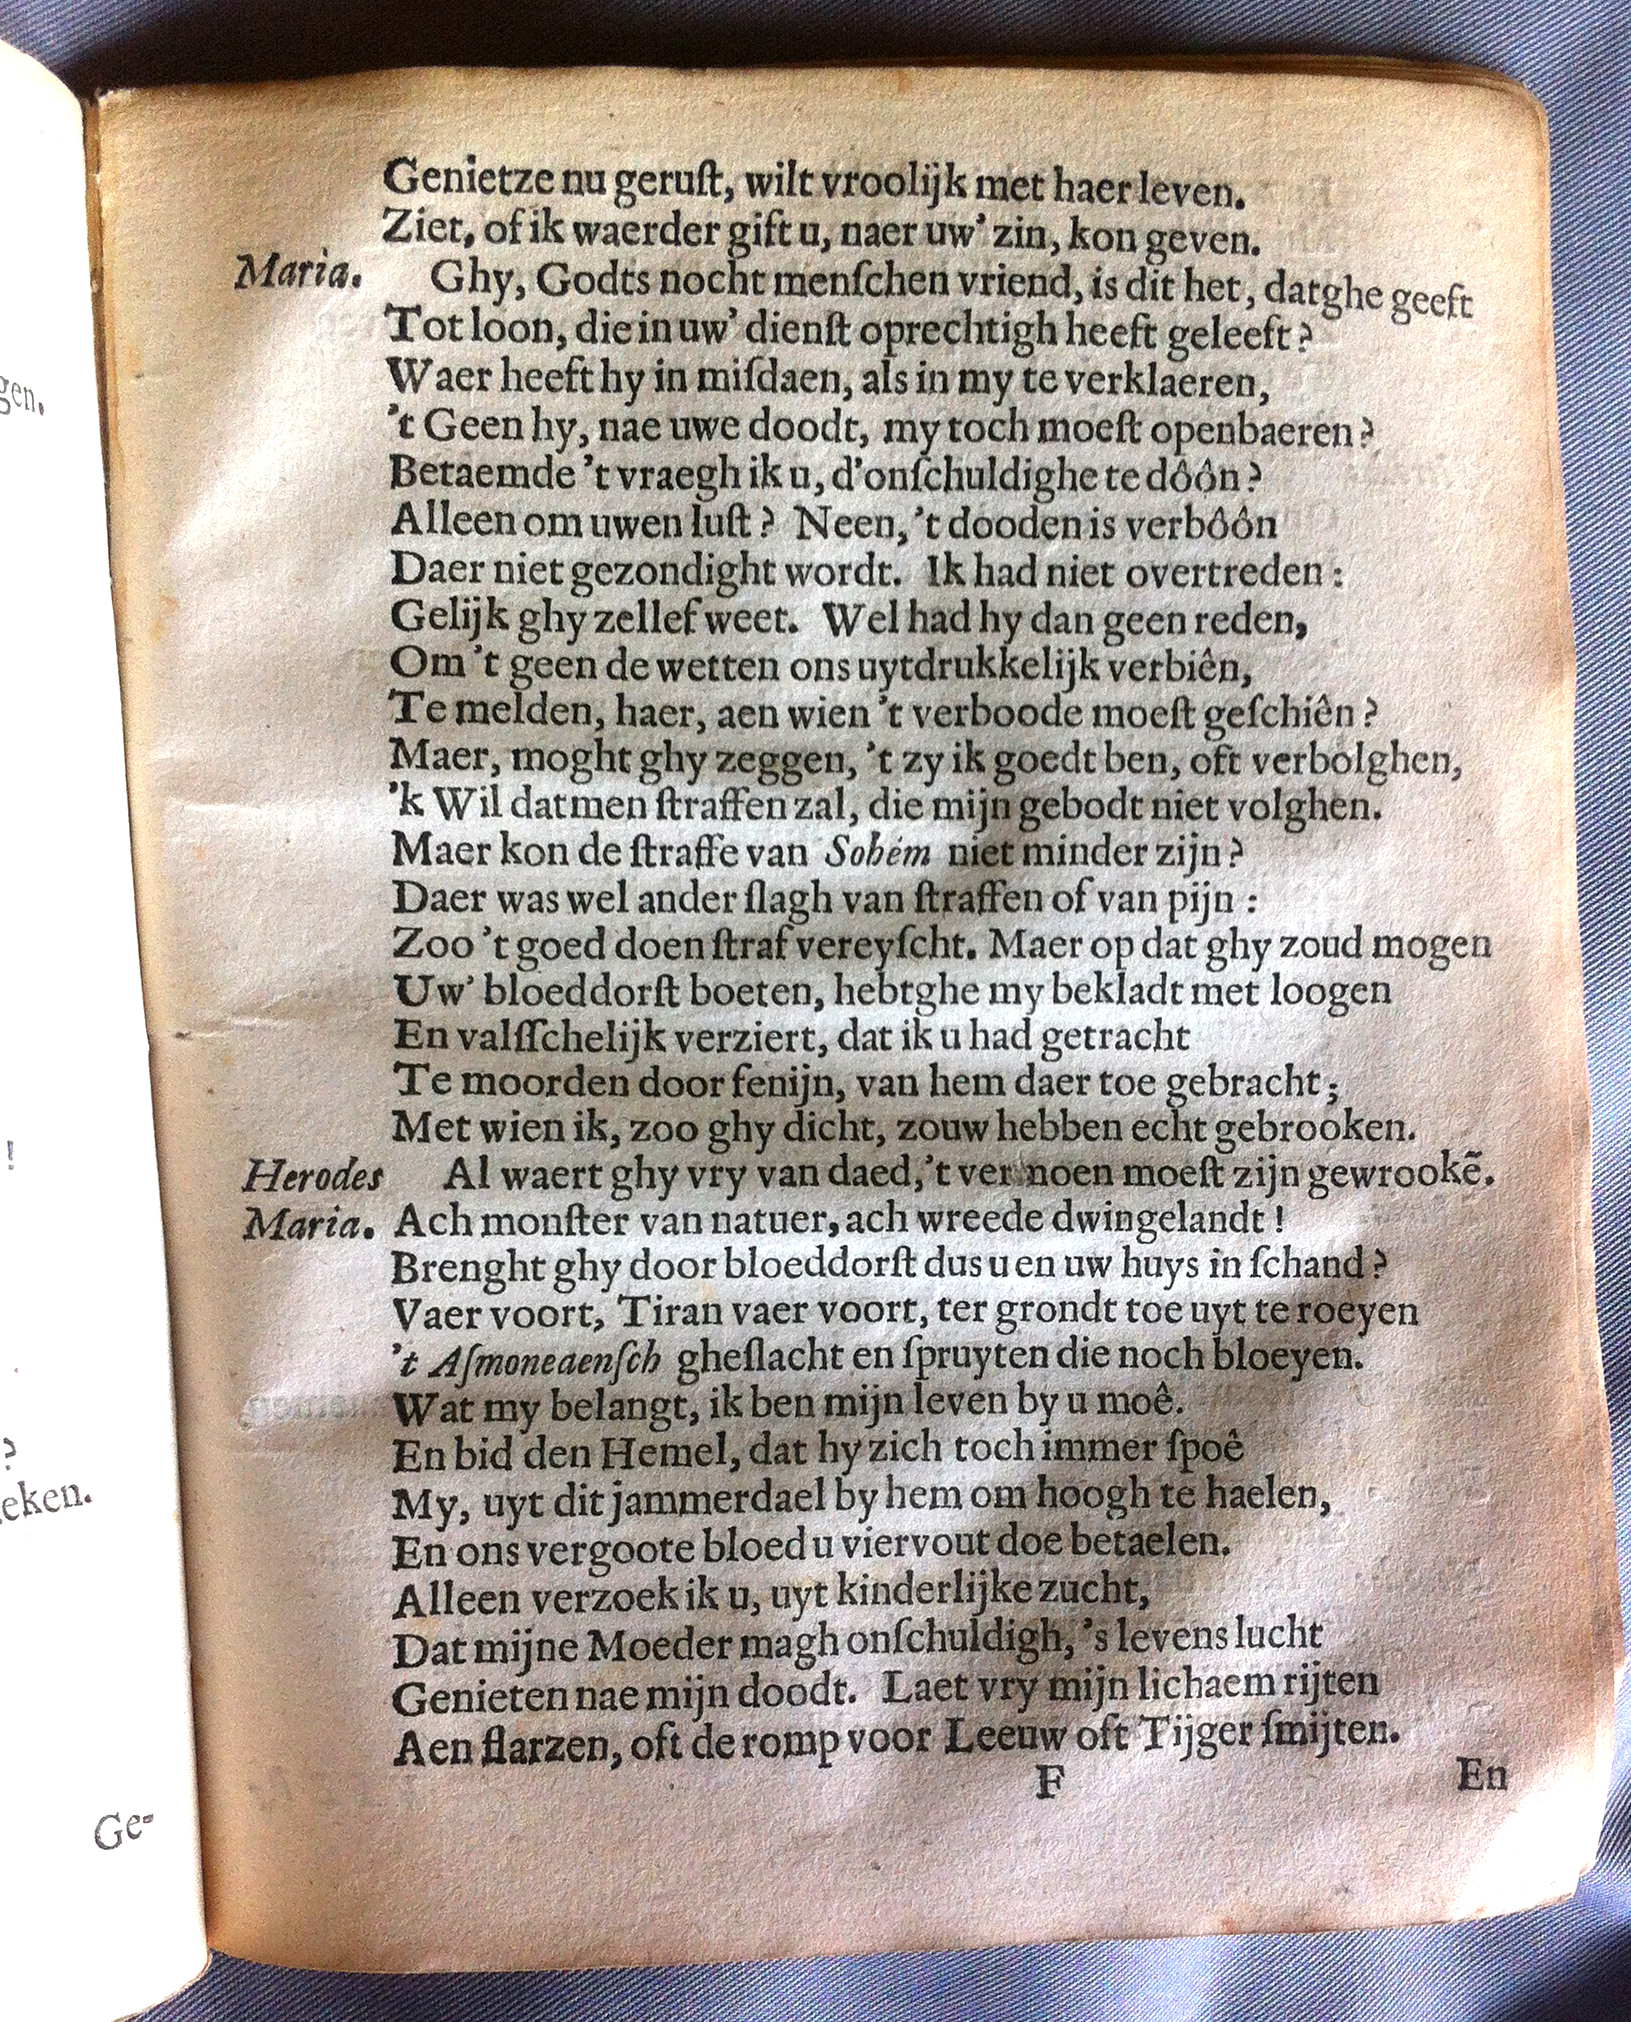 gen.
!
?
eken.
Ge-
Genietze nu geruſt, wilt vroolijk met haer leven.
Ziet, of ik waerder gift u, naer uw’ zin, kon geven.
Maria. Ghy, Godts nocht menſchen vriend, is dit het, datghe geeft
Tot loon, die in uw’ dienſt oprechtigh heeft geleeft?
Waer heeft hy in miſdaen, als in my te verklaeren,
’t Geen hy, nae uwe doodt, my toch moeſt openbaeren?
Betaemde ’t vraegh ik u, d’onſchuldighe te dôôn?
Alleen om uwen luſt? Neen, ’t dooden is verbôôn
Daer niet gezondight wordt. Ik had niet overtreden:
Gelijk ghy zellef weet. Wel had hy dan geen reden,
Om ’t geen de wetten ons uytdrukkelijk verbiên,
Te melden, haer, aen wien ’t verboode moeſt geſchiên?
Maer, moght ghy zeggen, ’t zy ik goedt ben, oft verbolghen,
’k Wil datmen ſtraffen zal, die mijn gebodt niet volghen.
Maer kon de ſtraffe van Sohém niet minder zijn?
Daer was wel ander ſlagh van ſtraffen of van pijn:
Zoo ’t goed doen ſtraf vereyſcht. Maer op dat ghy zoud mogen
Uw’ bloeddorſt boeten, hebtghe my bekladt met loogen
En valſſchelijk verziert, dat ik u had getracht
Te moorden door fenijn, van hem daer toe gebracht;
Met wien ik, zoo ghy dicht, zouw hebben echt gebrooken.
Herodes Al waert ghy vry van daed, ’t vermoen moeſt zijn gewrookẽ.
Maria. Ach monſter van natuer, ach wreede dwingelandt!
Brenght ghy door bloeddorſt dus u en uw huys in ſchand?
Vaer voort, Tiran vaer voort, ter grondt toe uyt te roeyen
’t Aſmoneaenſch gheſlacht en ſpruyten die noch bloeyen.
Wat my belangt, ik ben mijn leven by u moê.
En bid den Hemel, dat hy zich toch immer ſpoê
My, uyt dit jammerdael by hem om hoogh te haelen,
En ons vergoote bloed u viervout doe betaelen.
Alleen verzoek ik u, uyt kinderlijke zucht,
Dat mijne Moeder magh onſchuldigh, ’s levens lucht
Genieten nae mijn doodt. Laet vry mijn lichaem rijten
Aen flarzen, oft de romp voor Leeuw oft Tijger ſmijten.
F En